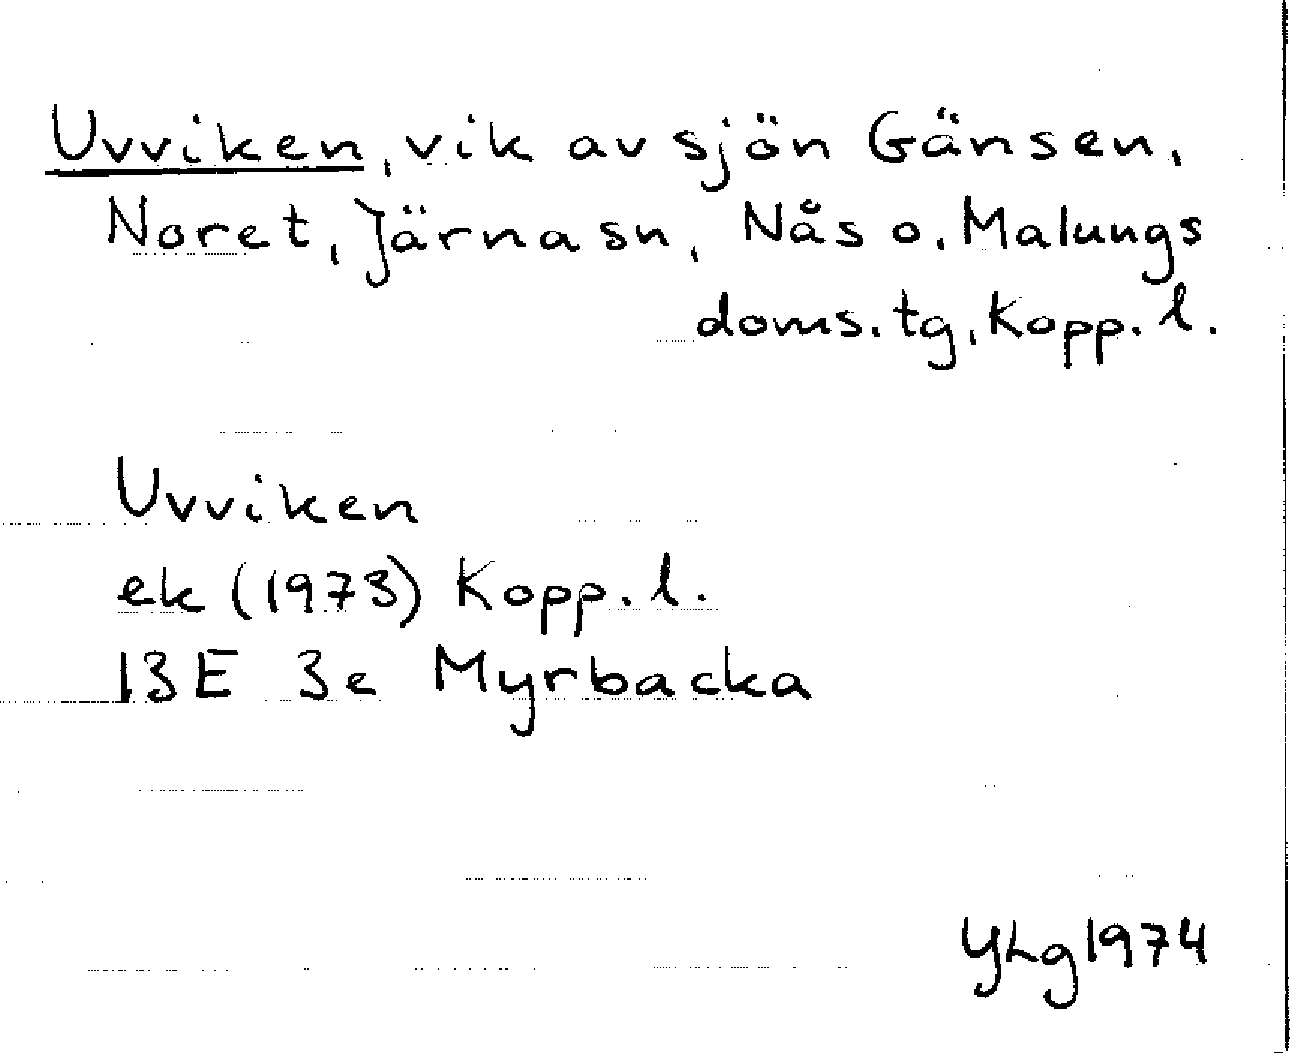 Uvviken, vik av sjön Gänsen,
Noret, Järna sn, Nås o. Malungs
doms.tg, Kopp. l.
Uvviken
ek (1973) Kopp. l.
13E 3e Myrbacka
YLg 1974